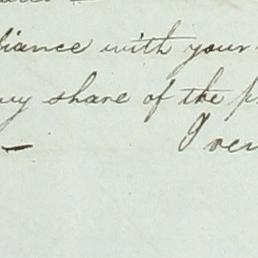 liance with your
my share of the
I